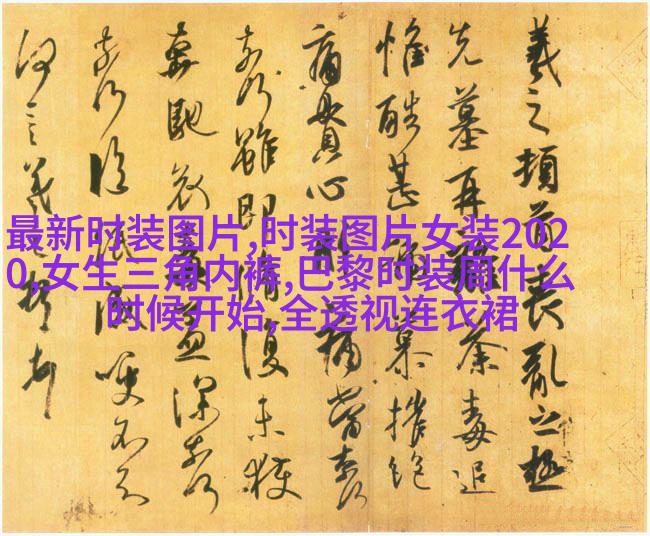 最新时装图片,时装图片女装202
0,女生三角内裤,巴黎时装周什么
时候开始,全透视连衣裙
羲之頓首喪亂之極
先墓再離荼毒追
惟酷甚號慕摧絕
痛貫心肝痛當奈何
奈何雖即脩復未獲
奔馳哀毒益深奈何
奈何臨紙感哽不知
何言羲之頓首